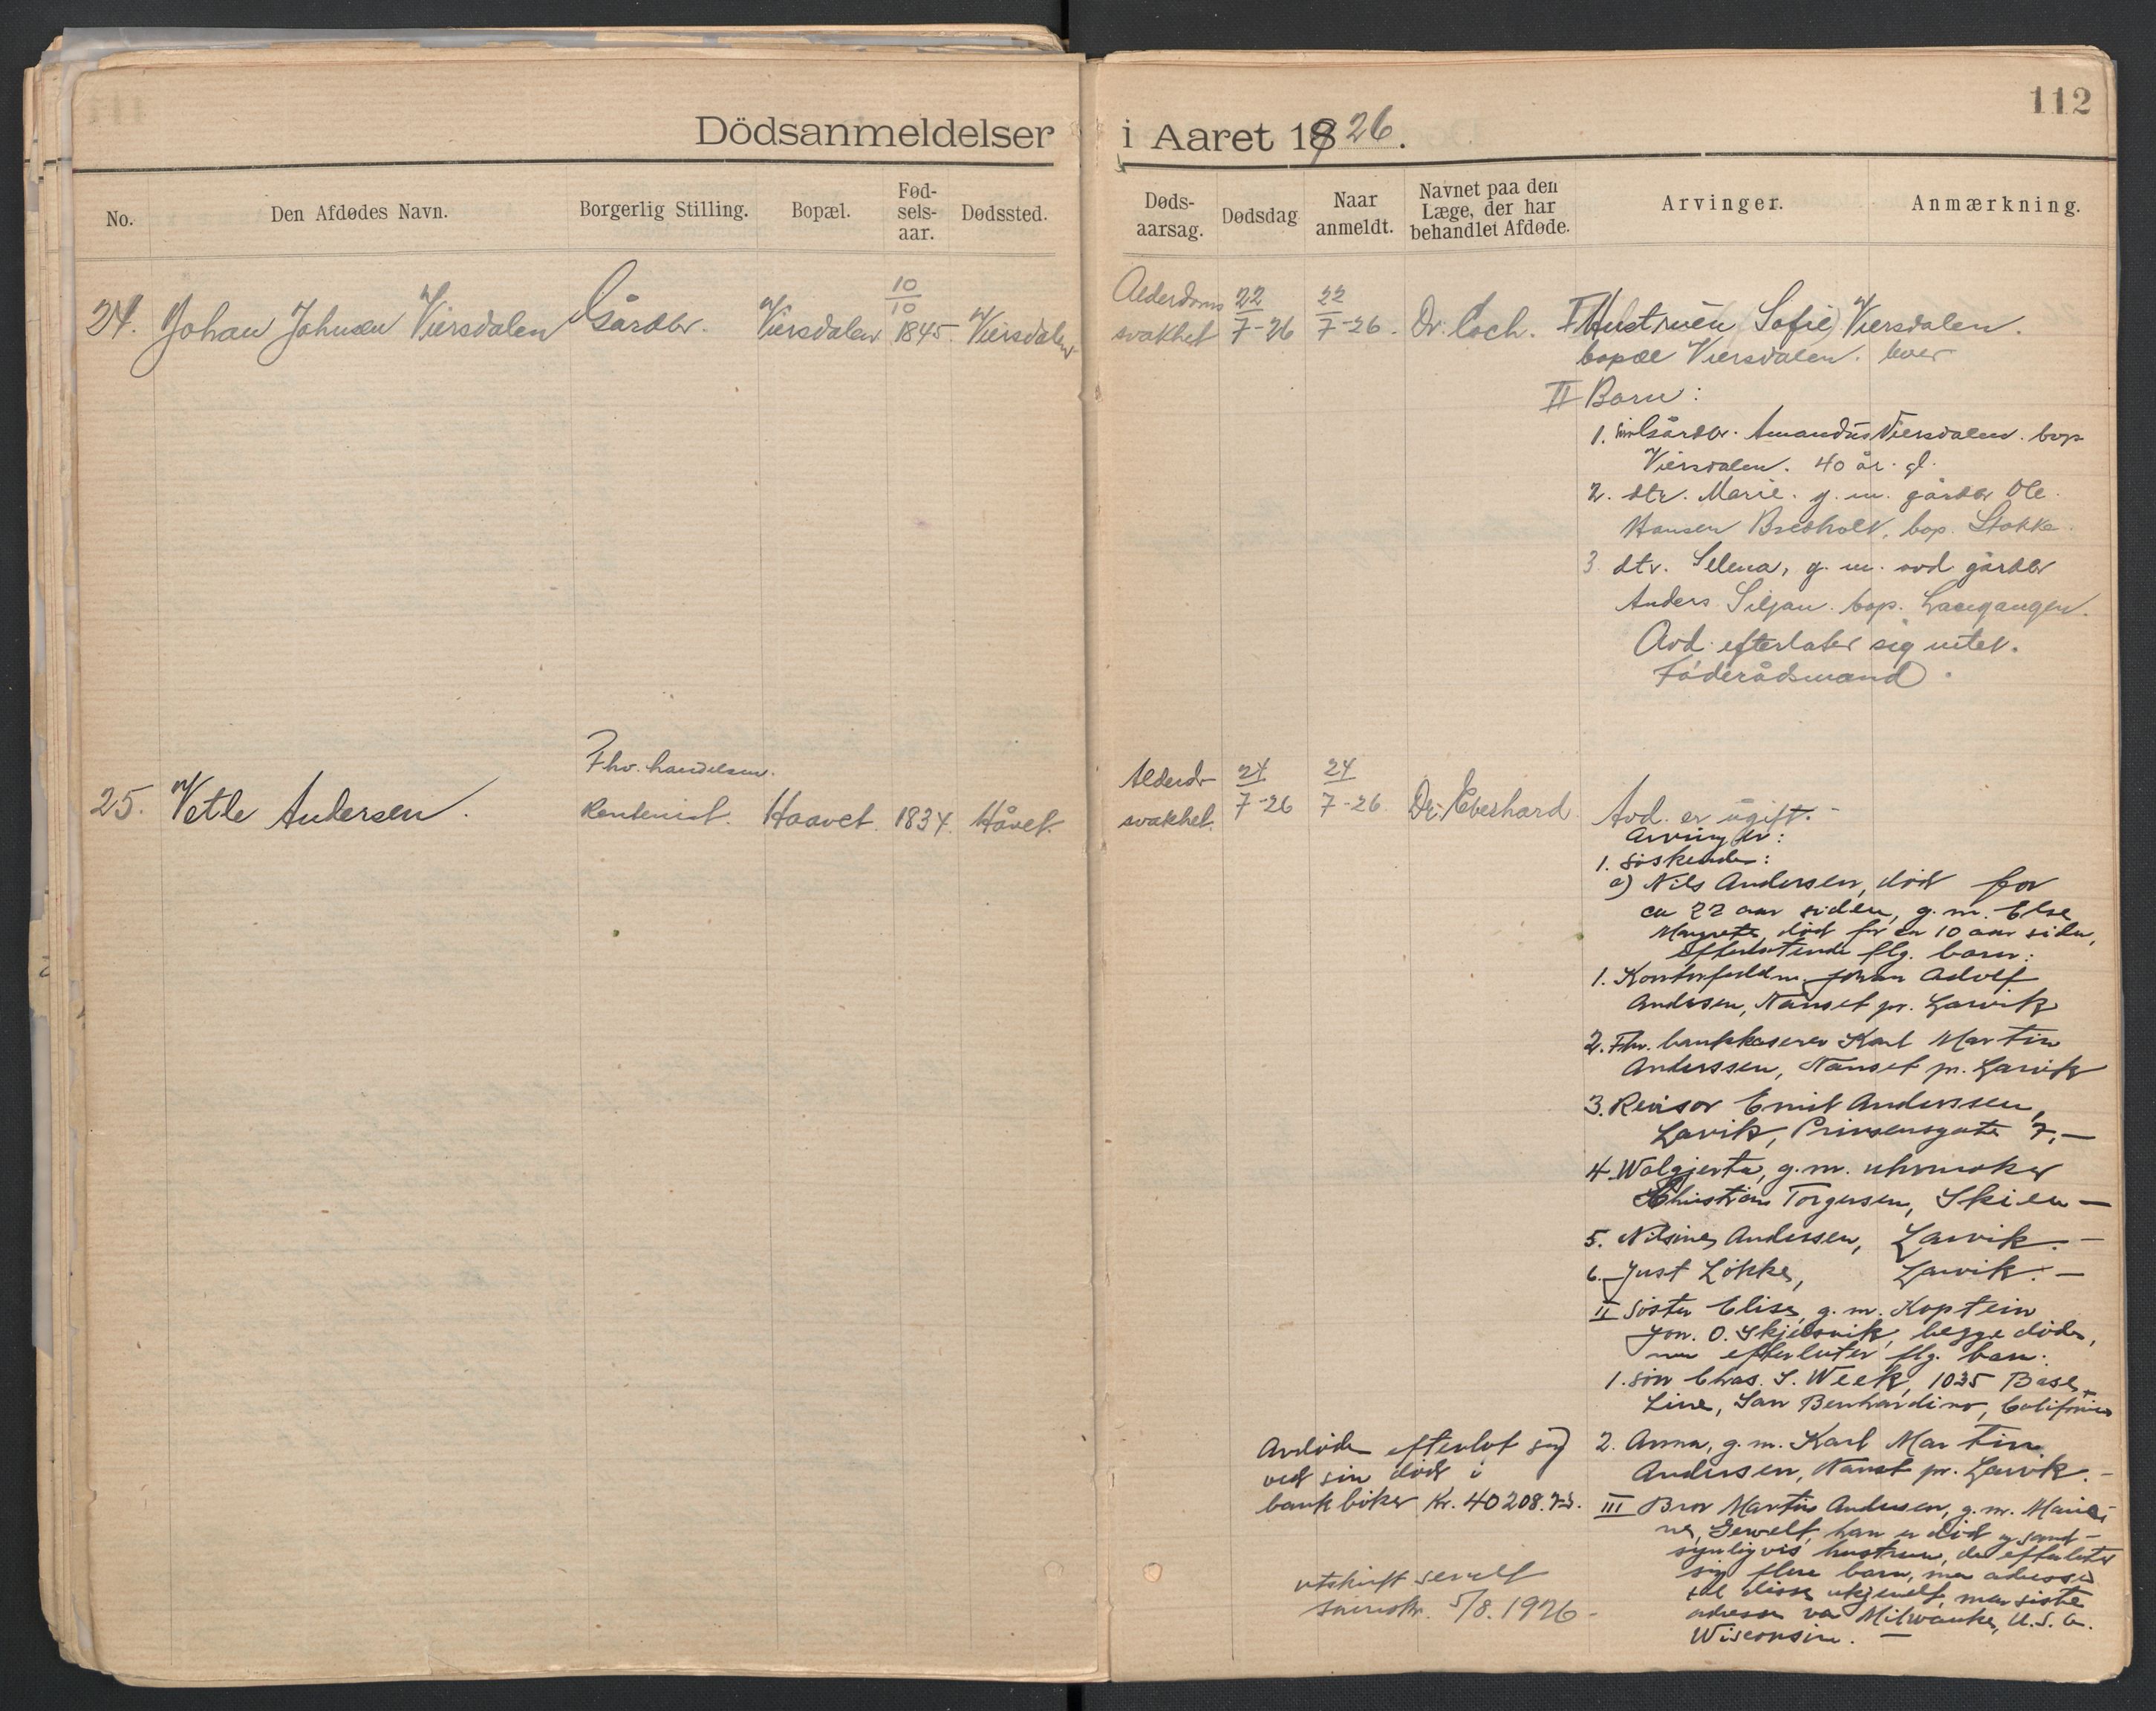 112
Dödsanmeldelser i Aaret 1926.
No. Den Afdødes Navn. Borgerlig Stilling. Bopæl. Fød-sels-aar. Dødssted. Døds-aarsag. Dødsdag Naar anmeldt. Navnet paa den Læge, der har behandlet Afdøde. Arvinger. Anmærkning.
24. Johan Johnsen Viersdalen Gårdbr. Viersdalen 10/10 1845 Viersdalen
Alderdoms svakhet 22/7-26 22/7-26. Dr. Coch.
I Hustruen Sofie Viersdalen.
bopæl Viersdalen.
II Barn:
1. søn Gårdbr. Amandus Viersdalen. bop.
Viersdalen. 40 år. gl.
2. dtr. Marie. g. m. gårdbr Ole
Hansen Bredholt, bop. Stokke.
3. dtr. Selena, g. m. avd gårdbr
Anders Siljan. bop. Langangen.
Avd. efterlater sig intet.
Føderådsmand.
25. Vetle Andersen. Fhv. handelsm. Rentenist. Haavet. 1834. Håvet.
Alderds- svakhet. 24/7-26 24/7-26. Dr. Eberhard
Avd. er ugift. -
Arvinger:
1. Søskende:
a) Nils Andersen, død for
ca 22 aar siden, g. m. Else
Margrete, død for ca 10 aar siden,
efterlatende flg. barn:
1. Kontorfuldm. Johan Adolf
Andersen, Nanset pr. Larvik
2. Fhv. bankkaserer Karl Martin
Anderssen, Nanset pr. Larvik
3. Revisor Emil Anderssen,
Larvik, Prinsensgate 7, -
4. Walgjerta, g. m. uhrmaker
Christian Torgersen, Skien -
5. Nilsine Andersen, Larvik. -
6. Just Løkke, Larvik. -
II Søster Elise, g. m. Kaptein
Jon. O. Skjelsvik, begge døde,
men efterlater flg. barn:
1. søn Chas. S. Week, 1035 Base
Line, San Bernhardino, California
2. Anna, g. m. Karl Martin
Andersen, Nanset pr. Larvik. -
III Bror Martin Andersen, g. m.
han er død og sand-
synligvis hustruen, de efterlater
sig flere barn, men adresse
til disse ukjendt, men siste
adresse var Milwauke, U.S.A.
Wisconsin. -
Avdøde efterlot sig
ved sin død i
bankbøker Kr. 40208.
utskrift sendt
5/8. 1926 -